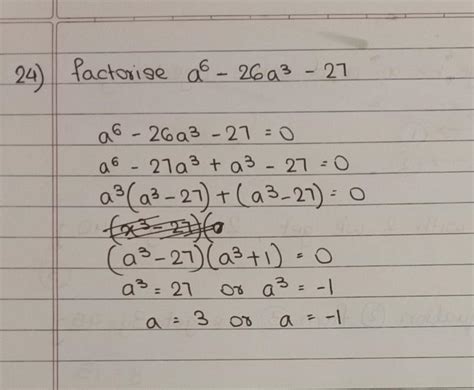 24) factorise a⁶ - 26a³ - 27
a⁶ - 26a³ - 27 = 0
a⁶ - 27a³ + a³ - 27 = 0
a³(a³ - 27) + (a³ - 27) = 0
(a³ - 27)(a³ + 1) = 0
a³ = 27 or a³ = -1
a = 3 or a = -1